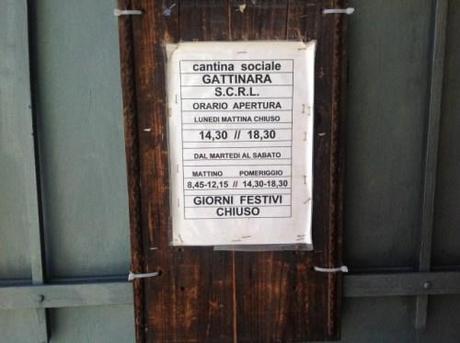 cantina sociale
GATTINARA
S.C.R.L.
ORARIO APERTURA
LUNEDI MATTINA CHIUSO
14,30 // 18,30
DAL MARTEDI AL SABATO
MATTINO POMERIGGIO
8,45-12,15 // 14,30-18,30
GIORNI FESTIVI
CHIUSO